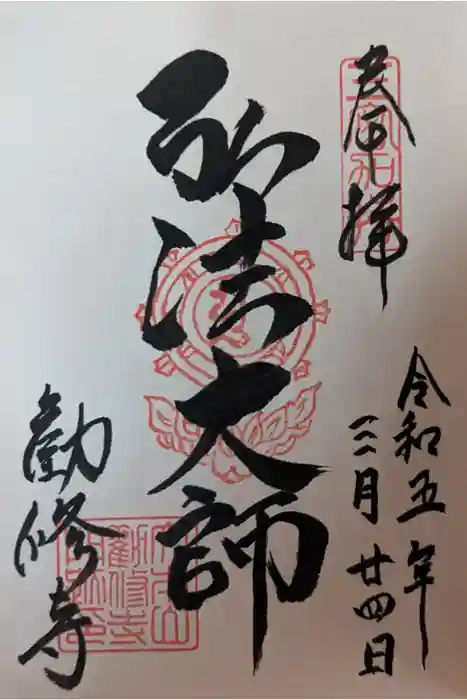 奉拝
令和五年
三月廿四日
弘法大師
勧修寺